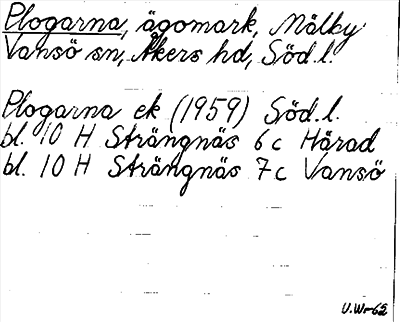 Plogarna, ägomark, Målby
Vansö sn, Åkers hd, Söd.l.
Plogarna ek (1959) Söd.l.
bl. 10 H Strängnäs 6c Härad
bl. 10 H Strängnäs 7c Vansö
U.Wr-62